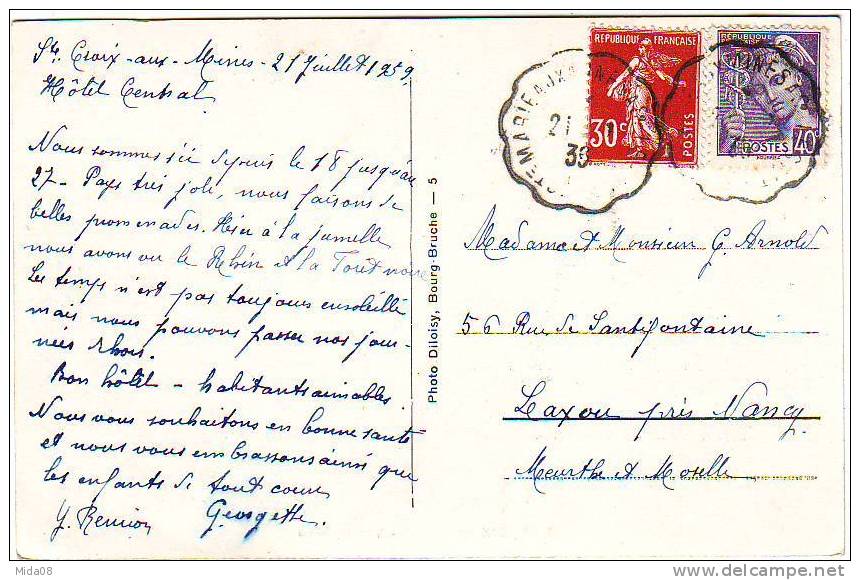 Ste Croix-aux-Mines-21 Juillet 1939
Hôtel Central
Nous sommes ici depuis le 18 jusqu'au
27- Pays très joli, nous faisons de
belles promenades. Hier à la jumelle
nous avons vu le Rhin et la Forêt noire
Le temps n'est pas toujours ensoleillé
mais nous pouvons passer nos jour-
nées dehors.
Bon hôtel - habitants aimables.
Nous vous souhaitons en bonne santé
et nous vous embrassons ainsi que
les enfants de tout coeur
Georgette.
Photo Diloisy, Bourg-Bruche — 5
RÉPUBLIQUE FRANÇAISE
30c
POSTES
40c
POSTES
21
Madame et Monsieur G. Arnold
56 Rue de Santifontaine
Laxou près Nancy
Meurthe et Moselle
Mida08
http://www.delcampe.net